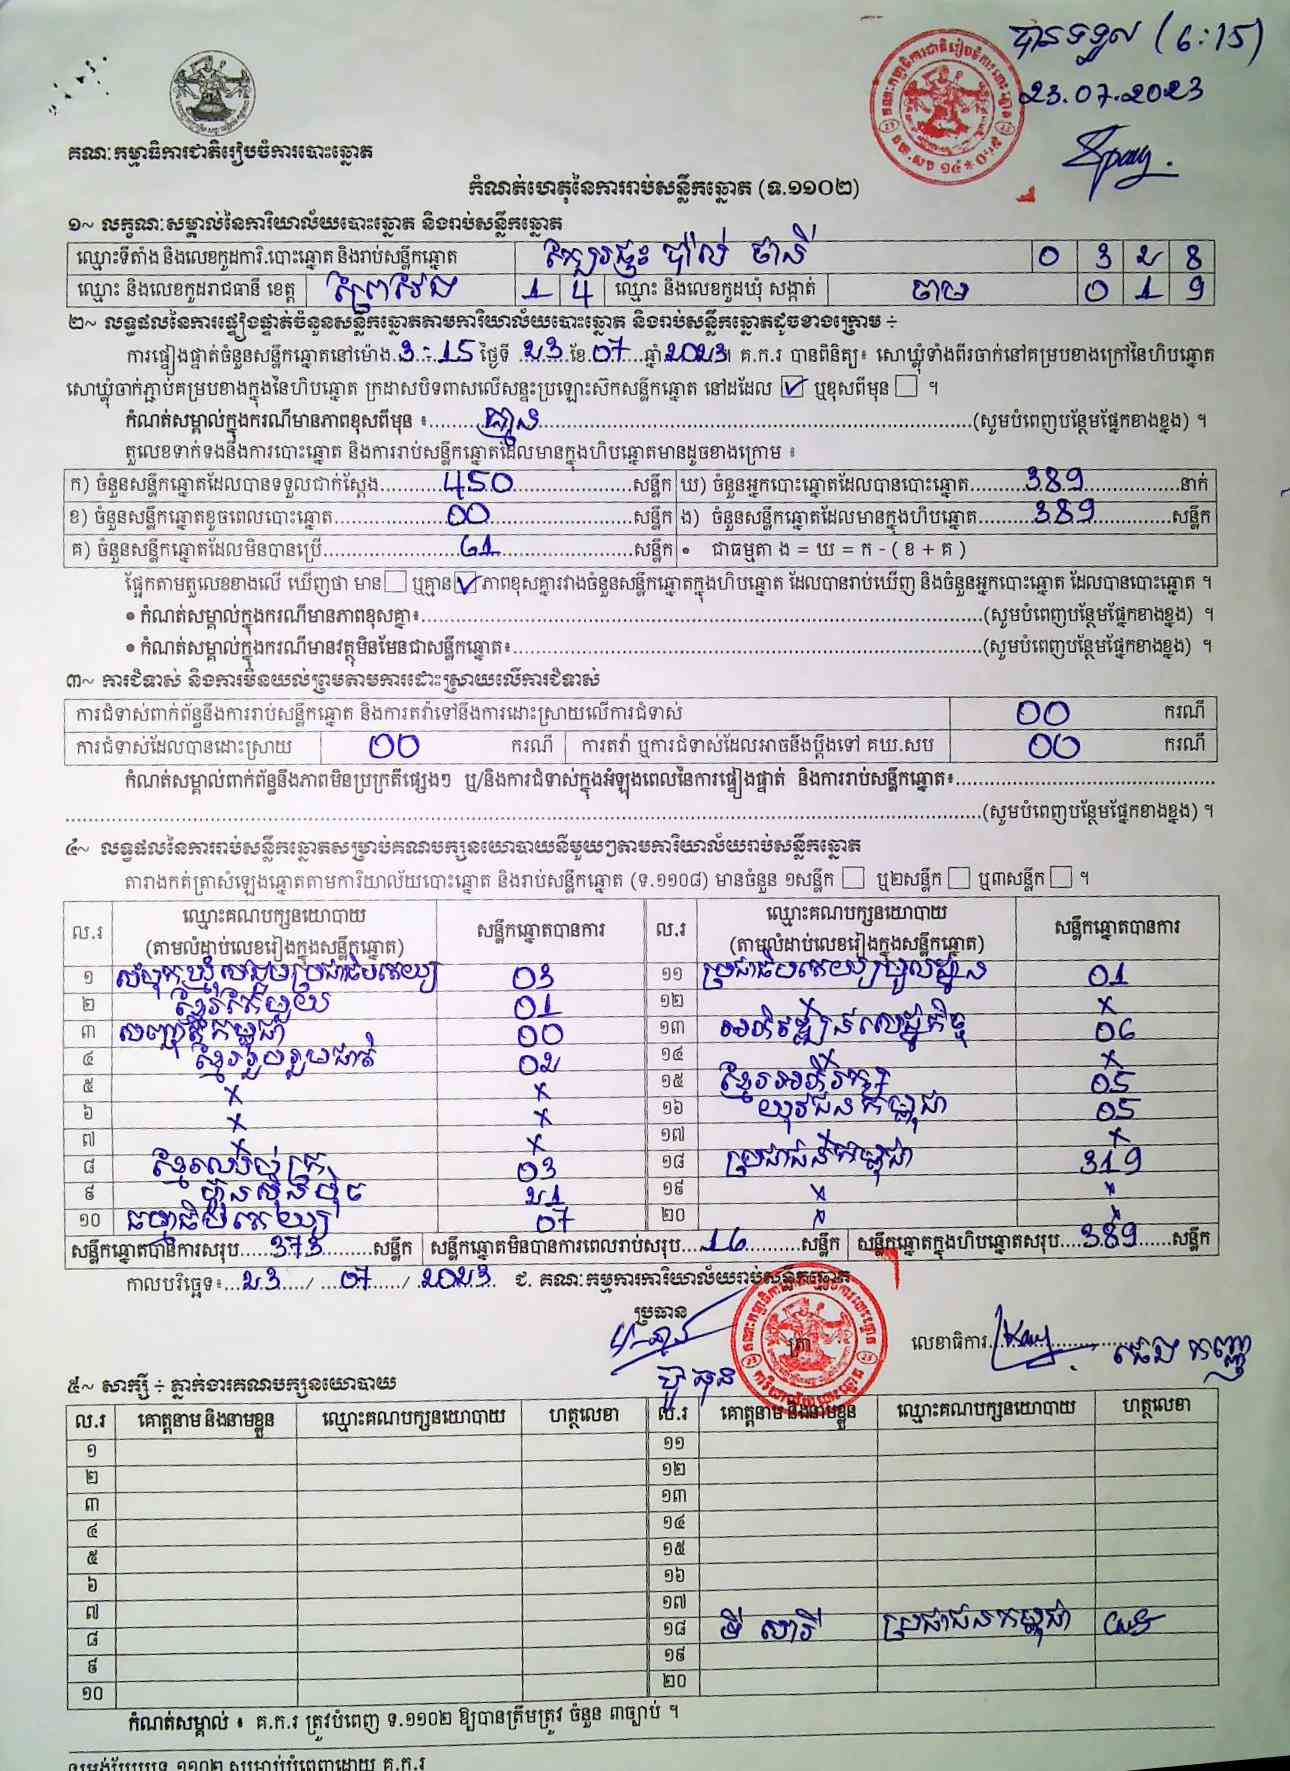 បានទទួល (6:15)
23.07.2023
គណៈកម្មាធិការជាតិរៀបចំការបោះឆ្នោត
កំណត់ហេតុនៃការរាប់សន្លឹកឆ្នោត (ទ.១១០២)
១~ លក្ខណៈសម្គាល់នៃការិយាល័យបោះឆ្នោត និងរាប់សន្លឹកឆ្នោត
ឈ្មោះទីតាំង និងលេខកូដការិ.បោះឆ្នោត និងរាប់សន្លឹកឆ្នោត ថានី 0 3 2 8
ឈ្មោះ និងលេខកូដរាជធានី ខេត្ត ព្រៃវែង 1 4 ឈ្មោះ និងលេខកូដឃុំ សង្កាត់ ចាម 0 1 9
២~ លទ្ធផលនៃការផ្ទៀងផ្ទាត់ចំនួនសន្លឹកឆ្នោតតាមការិយាល័យបោះឆ្នោត និងរាប់សន្លឹកឆ្នោតដូចខាងក្រោម ÷
ការផ្ទៀងផ្ទាត់ចំនួនសន្លឹកឆ្នោតនៅម៉ោង 3:15 ថ្ងៃទី 23 ខែ 07 ឆ្នាំ 2023។ គ.ក.រ បានពិនិត្យ៖ សោឃ្លុំទាំងពីរចាក់នៅគម្របខាងក្រៅនៃហិបឆ្នោត
សោឃ្លុំចាក់ភ្ជាប់គម្របខាងក្នុងនៃហិបឆ្នោត ក្រដាសបិទពាសលើសន្ទះប្រឡោះស៊កសន្លឹកឆ្នោត នៅដដែល ☑ ឬខុសពីមុន ☐ ។
កំណត់សម្គាល់ក្នុងករណីមានភាពខុសពីមុន ៖ គ្មាន (សូមបំពេញបន្ថែមផ្នែកខាងខ្នង) ។
តួលេខទាក់ទងនឹងការបោះឆ្នោត និងការរាប់សន្លឹកឆ្នោតដែលមានក្នុងហិបឆ្នោតមានដូចខាងក្រោម ៖
ក) ចំនួនសន្លឹកឆ្នោតដែលបានទទួលជាក់ស្តែង 450 សន្លឹក ឃ) ចំនួនអ្នកបោះឆ្នោតដែលបានបោះឆ្នោត 389 នាក់
ខ) ចំនួនសន្លឹកឆ្នោតខូចពេលបោះឆ្នោត 00 សន្លឹក ង) ចំនួនសន្លឹកឆ្នោតដែលមានក្នុងហិបឆ្នោត 389 សន្លឹក
គ) ចំនួនសន្លឹកឆ្នោតដែលមិនបានប្រើ 61 សន្លឹក • ជាធម្មតា ង = ឃ = ក - ( ខ + គ )
ផ្អែកតាមតួលេខខាងលើ ឃើញថា មាន ☐ ឬគ្មាន ☑ ភាពខុសគ្នារវាងចំនួនសន្លឹកឆ្នោតក្នុងហិបឆ្នោត ដែលបានរាប់ឃើញ និងចំនួនអ្នកបោះឆ្នោត ដែលបានបោះឆ្នោត ។
• កំណត់សម្គាល់ក្នុងករណីមានភាពខុសគ្នា៖ (សូមបំពេញបន្ថែមផ្នែកខាងខ្នង) ។
• កំណត់សម្គាល់ក្នុងករណីមានវត្ថុមិនមែនជាសន្លឹកឆ្នោត៖ (សូមបំពេញបន្ថែមផ្នែកខាងខ្នង) ។
៣~ ការជំទាស់ និងការមិនយល់ព្រមតាមការដោះស្រាយលើការជំទាស់
ការជំទាស់ពាក់ព័ន្ធនឹងការរាប់សន្លឹកឆ្នោត និងការតវ៉ាទៅនឹងការដោះស្រាយលើការជំទាស់ 00 ករណី
ការជំទាស់ដែលបានដោះស្រាយ 00 ករណី ការតវ៉ា ឬការជំទាស់ដែលអាចនឹងប្តឹងទៅ គឃ.សប 00 ករណី
កំណត់សម្គាល់ពាក់ព័ន្ធនឹងភាពមិនប្រក្រតីផ្សេងៗ ឬ/និងការជំទាស់ក្នុងអំឡុងពេលនៃការផ្ទៀងផ្ទាត់ និងការរាប់សន្លឹកឆ្នោត៖
(សូមបំពេញបន្ថែមផ្នែកខាងខ្នង) ។
៤~ លទ្ធផលនៃការរាប់សន្លឹកឆ្នោតសម្រាប់គណបក្សនយោបាយនីមួយៗតាមការិយាល័យរាប់សន្លឹកឆ្នោត
តារាងកត់ត្រាសំឡេងឆ្នោតតាមការិយាល័យបោះឆ្នោត និងរាប់សន្លឹកឆ្នោត (ទ.១១០៨) មានចំនួន ១សន្លឹក ☐ ឬ២សន្លឹក ☐ ឬ៣សន្លឹក ☐ ។
ល.រ ឈ្មោះគណបក្សនយោបាយ (តាមលំដាប់លេខរៀងក្នុងសន្លឹកឆ្នោត) សន្លឹកឆ្នោតបានការ ល.រ ឈ្មោះគណបក្សនយោបាយ (តាមលំដាប់លេខរៀងក្នុងសន្លឹកឆ្នោត) សន្លឹកឆ្នោតបានការ
១ សំបុកឃ្មុំសង្គមប្រជាធិបតេយ្យ 03 ១១ ប្រជាធិបតេយ្យមូលដ្ឋាន 01
២ ខ្មែរតែមួយ 01 ១២ x
៣ សញ្ជាតិកម្ពុជា 00 ១៣ អភិវឌ្ឍន៍សេដ្ឋកិច្ច 06
៤ ខ្មែររួបរួមជាតិ 02 ១៤ x
៥ x x ១៥ ខ្មែរអភិរក្ស 05
៦ x x ១៦ យុវជនកម្ពុជា 05
៧ x x ១៧ x
៨ ខ្មែរឈប់ក្រ 03 ១៨ ប្រជាជនកម្ពុជា 319
៩ ហ្វ៊ុនស៊ិនប៉ិច 21 ១៩ x x
១០ ធម្មាធិបតេយ្យ 07 ២០ x x
សន្លឹកឆ្នោតបានការសរុប 373 សន្លឹក សន្លឹកឆ្នោតមិនបានការពេលរាប់សរុប 16 សន្លឹក សន្លឹកឆ្នោតក្នុងហិបឆ្នោតសរុប 389 សន្លឹក
កាលបរិច្ឆេទ៖ 23 / 07 / 2023 ជ. គណៈកម្មការការិយាល័យរាប់សន្លឹកឆ្នោត
ប្រធាន ត្រា លេខាធិការ
៥~ សាក្សី ÷ ភ្នាក់ងារគណបក្សនយោបាយ
ល.រ គោត្តនាម និងនាមខ្លួន ឈ្មោះគណបក្សនយោបាយ ហត្ថលេខា ល.រ គោត្តនាម និងនាមខ្លួន ឈ្មោះគណបក្សនយោបាយ ហត្ថលេខា
១ ១១
២ ១២
៣ ១៣
៤ ១៤
៥ ១៥
៦ ១៦
៧ ១៧
៨ ១៨ ទី សារី ប្រជាជនកម្ពុជា
៩ ១៩
១០ ២០
កំណត់សម្គាល់ ៖ គ.ក.រ ត្រូវបំពេញ ទ.១១០២ ឱ្យបានត្រឹមត្រូវ ចំនួន ៣ច្បាប់ ។